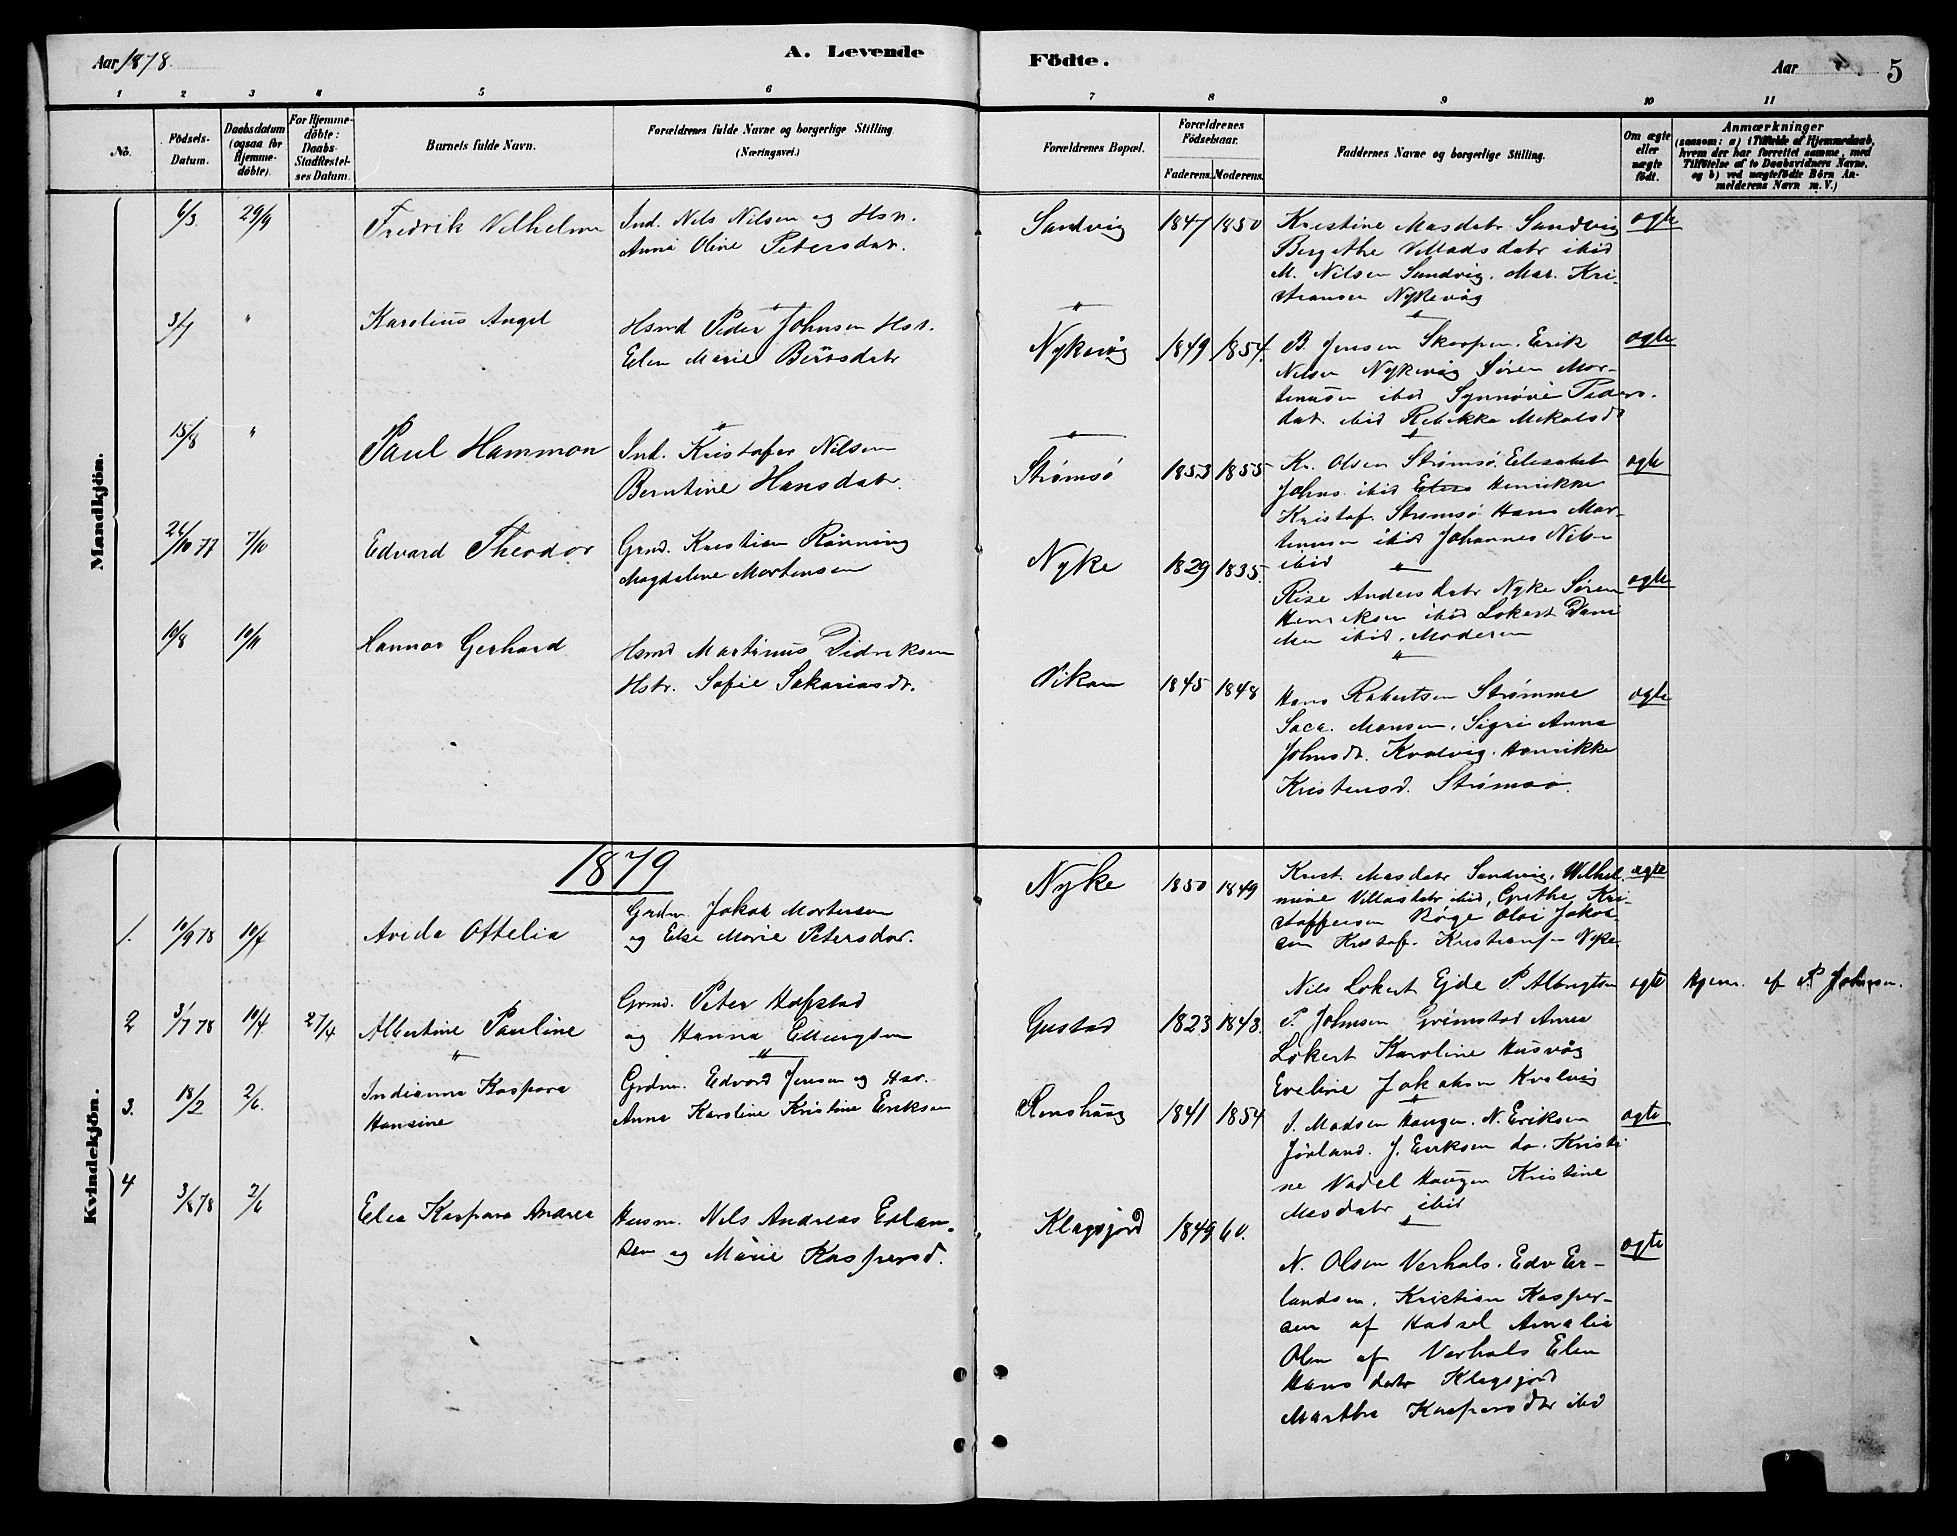 Aar 1878.
A. Levende
Födte.
Aar
5
1 2 3 4 5 6 7 8 9 10 11
No.
Födsels-Datum.
Daabsdatum (ogsaa for Hjemme-döbte).
For Hjemme-döbte: Daabs-Stadfæstel-ses Datum.
Barnets fulde Navn.
Forældrenes fulde Navne og borgerlige Stilling.
(Næringsvei.)
Forældrenes Bopæl.
Forældrenes Födselsaar.
Faderens. Moderens.
Faddernes Navne og borgerlige Stilling.
Om ægte eller uægte födt.
Anmærkninger
(saasom: a) i Tilfælde af Hjemmedaab,
hvem der har forrettet samme, med
Tilföielse af to Daabsvidners Navne,
og b) ved uægtefödte Börn An-
melderens Navn m. V.)
Mandkjön.
6/3. 29/9 Fredrik Vilhelm
Ind. Nils Nilsen og Hsn.
Anna Oline Petersdatr.
Sandvig 1847 1850
Kristine Masdatr Sandvig
Bergithe Villadsdatr ibid
M. Nilsen Sandvig. Mar. Kri-
stiansen Nykevåg
ægte
3/7 " Karolius Angel
Hsmd Peder Johnsen Hst.
Elen Marie Berntsdatr
Nykevåg 1849 1854.
B. Jensen Skorpen. Erik
Nilsen Nykevåg Søren Mor-
tinusen ibid Synnøve Peders-
dat. ibid Rebekka Mekalsdt
ægte
15/8 " Paul Hammon
Ind. Kristofer Nilsen
Berntine Hansdatr.
Strømsø 1853 1855
Kr. Olsen Strømsø. Elisabet
Johns. ibid Henrikke
Kristof. Strømsø Hans Mar-
tinusen ibid Johannes Nilsen
ibid
ægte
26/10 77 7/10 Edvard Theodor
Grmd. Kristian Rönning
Magdalene Mortensen
Nyke 1829 1835.
Rise Andersdatr Nyke Søren
Henriksen ibid Lokert Dani
elsen ibid. Moderen
ægte
10/8 10/11 Hannar Gerhard
Hsmd Martinus Didreksen
Hstr. Sofie Sakariasdt.
Vikan 1845 1848
Hans Robertsen Strømme
Saca. Monsen. Sigri Anna
Johnsdt. Kvalvig. Henrikke
Kristensd. Strømsø.
ægte
Kvindekjön.
1879
1. 10/9 78 10/4 Avida Ottelia
Grdm. Jakob Mortensen
og Else Marie Petersdatr.
Nyke 1850 1849
Krist. Masdatr Sandvig. Wilhel
mine Villasdatr ibid, Grethe Kri-
stoffersen Røge Olai Jakob-
sen Kristof. Kristians- Nyke
ægte
2 3/7 78 10/4 27/4 Albertine Pauline
Grmd. Peter Hofstad
og Hanna Ellingsen
Gustad 1823 1843.
Nils Lokert Ejde P. Albrigtsen
P. Johnsen Grimstad Anna
Lokert Karoline Husvåg
Eveline Jakobsen Kvalvig
ægte
Hjem. af P. Johnsen.
3. 18/2 2/6. Indianna Kaspara
Hansine
Grdm. Edvard Jensen og Hsr.
Anna Karoline Kristine Eriksen
Ramshaug 1841 1854
J. Madsen Haugen. N. Eriksen
Jörland. J. Eriksen do. Kristi
ne Nadel Haugen Kristine
Masdatr ibid
ægte
4 3/8 78 2/6 Elea Kaspara Andrea
Husm. Nils Andreas Erlan-
sen og Marie Kaspersd.
Klagsjord 1849 60.
N. Olsen Verhals. Edv Er-
landsen. Kristian Kasper-
sen af Hadsel Amalia
Olsen af Verhals Elen
Hansdatr Klagsjord
Martha Kaspersdtr ibid
ægte